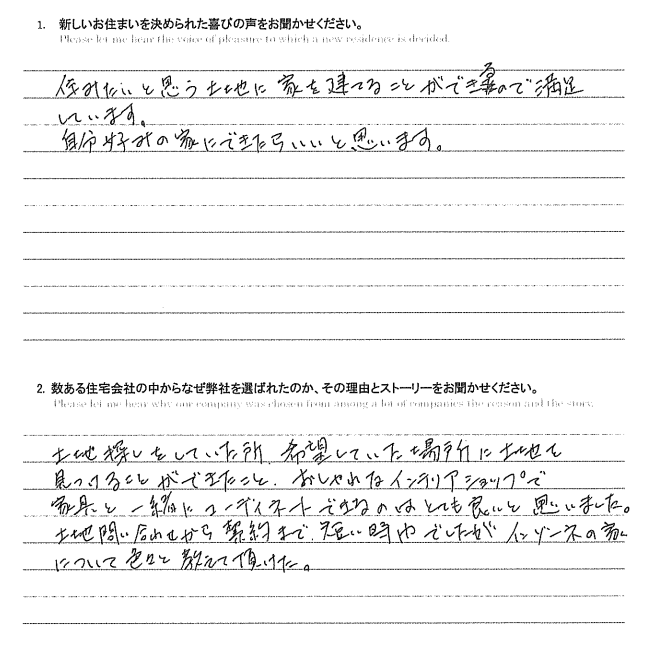 1. 新しいお住まいを決められた喜びの声をお聞かせください。
Please let me hear the voice of pleasure to which a new residence is decided.
住みたいと思う土地に家を建てることができるので満足
しています。
自分好みの家にできたらいいと思います。
2. 数ある住宅会社の中からなぜ弊社を選ばれたのか、その理由とストーリーをお聞かせください。
Please let me hear why our company was chosen from among a lot of companies the reason and the story.
土地探しをしていた所、希望していた場所に土地を
見つけることができたこと、おしゃれなインテリアショップで
家具と一緒にコーディネートできるのはとても良いと思いました。
土地問い合わせから契約まで、短い時間でしたがインゾーネの家
について色々と教えて頂けた。